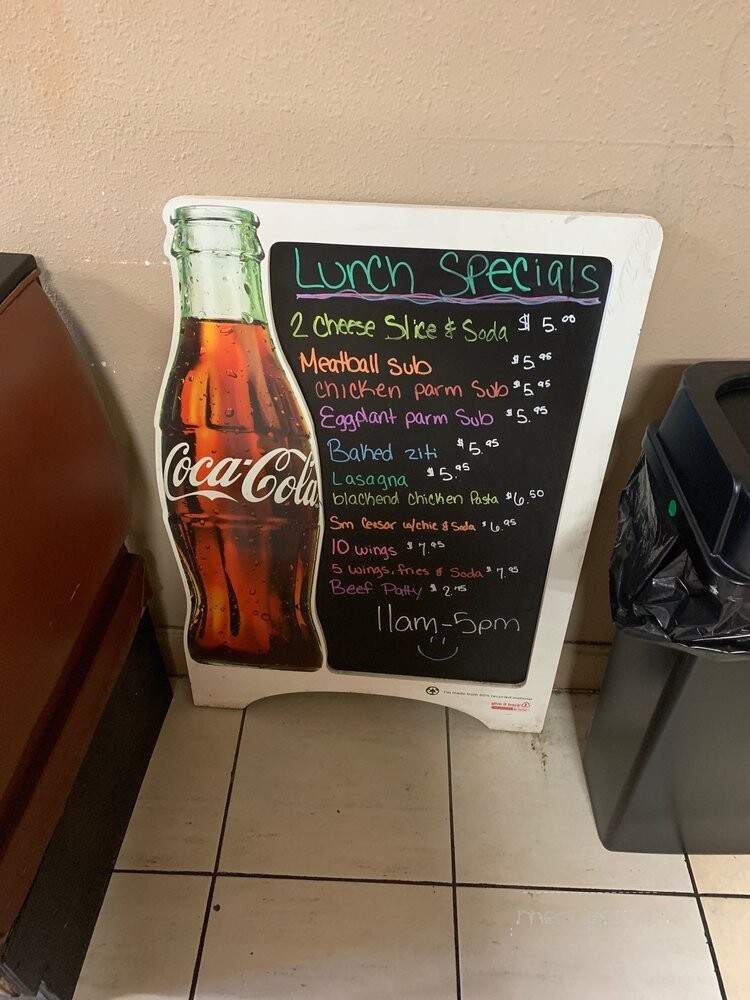 Lunch Specials
2 Cheese Slice & Soda $5.00
Meatball Sub $5.95
Chicken parm Sub $5.95
Eggplant parm Sub $5.95
Baked ziti $5.95
Lasagna $5.95
blackend chicken Pasta $6.50
Sm Ceasar w/chic & Soda $6.95
10 wings $7.95
5 wings, fries & Soda $7.95
Beef Patty $2.75
11am-5pm
Coca-Cola